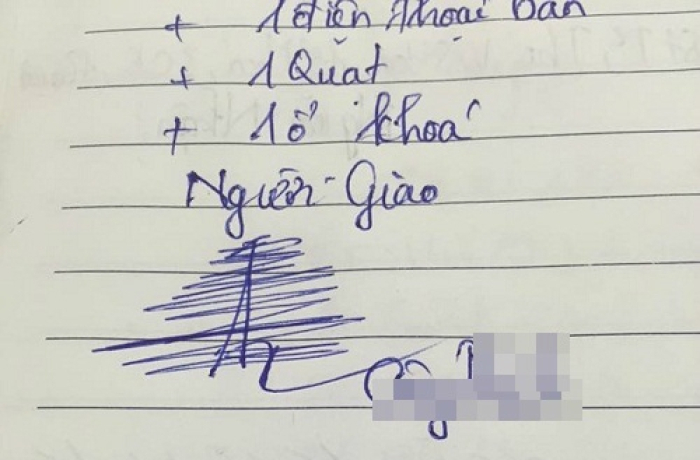 + 1 điện thoại bàn
+ 1 Quạt
+ 1 ổ khoá
Người Giao